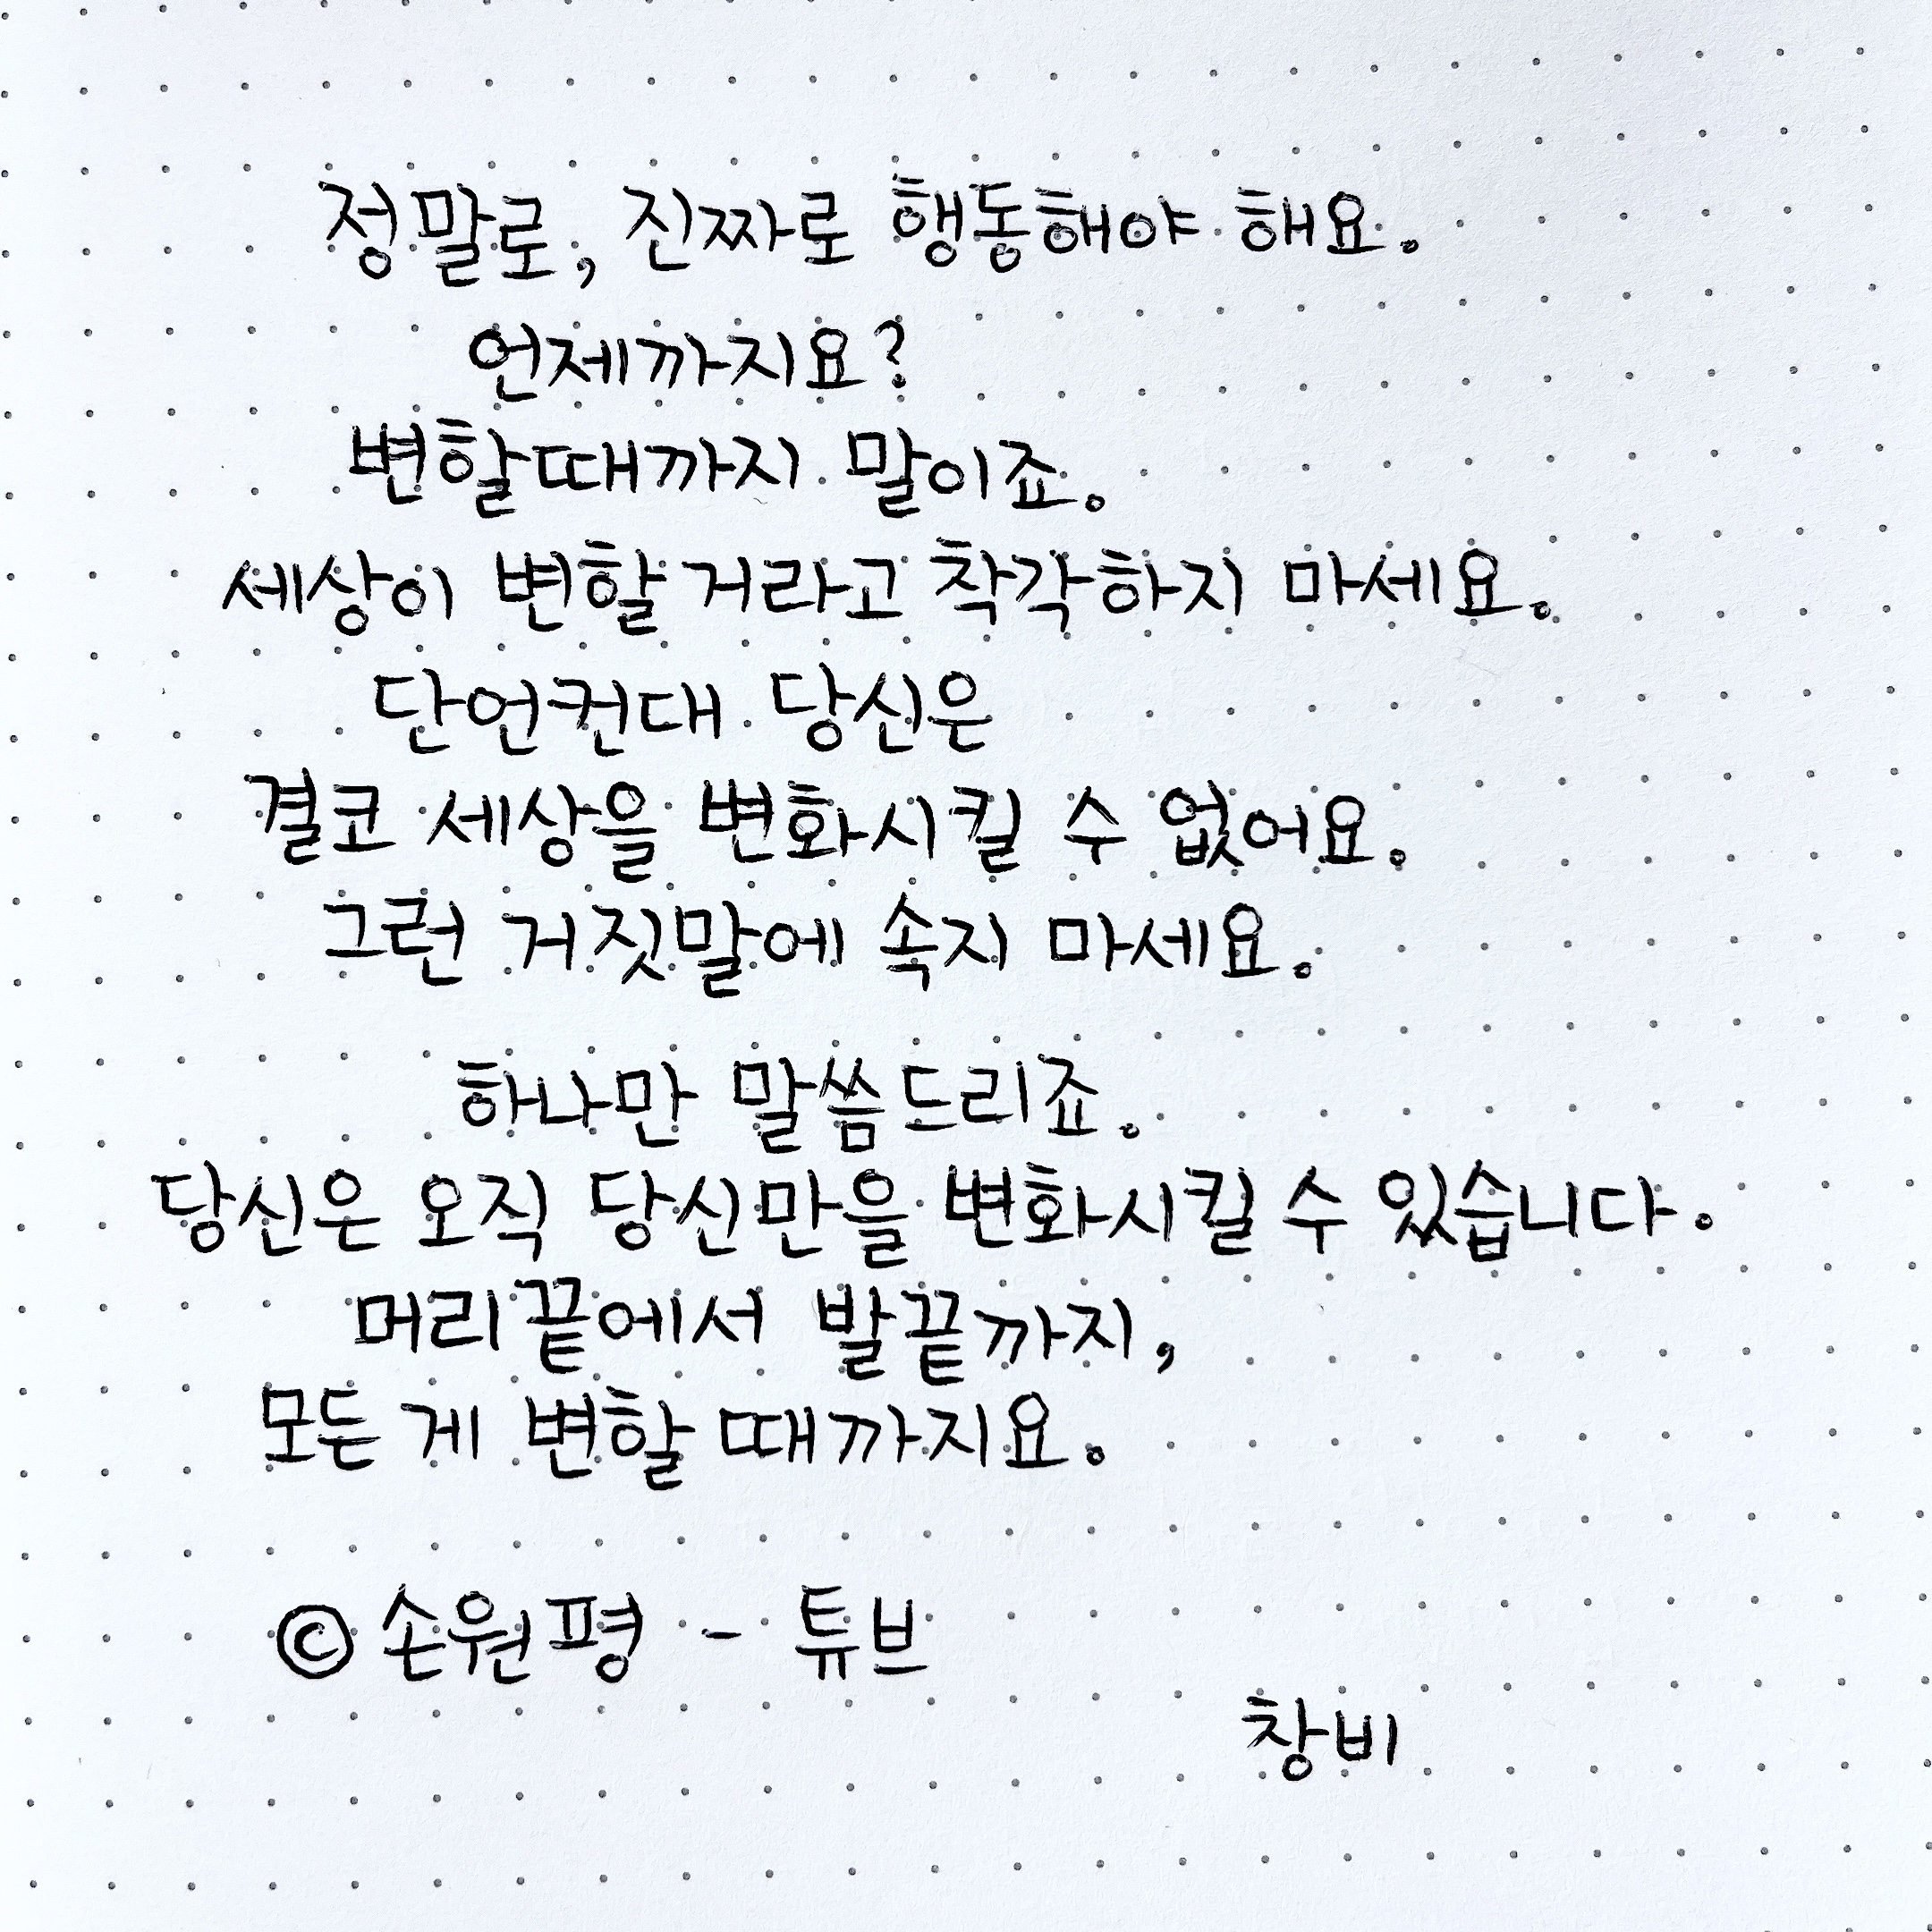 정말로, 진짜로 행동해야 해요.
언제까지요?
변할때까지 말이죠.
세상이 변할 거라고 착각하지 마세요.
단언컨대 당신은
결코 세상을 변화시킬 수 없어요.
그런 거짓말에 속지 마세요.
하나만 말씀드리죠.
당신은 오직 당신만을 변화시킬 수 있습니다.
머리끝에서 발끝까지,
모든 게 변할 때까지요.
© 손원평 - 튜브
창비